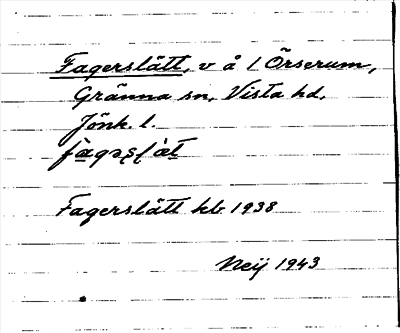 Fagerslätt, v å l Örserum,
Gränna sn, Vista hd,
Jönk. l.
Fagerslätt kb 1938
Neij 1943